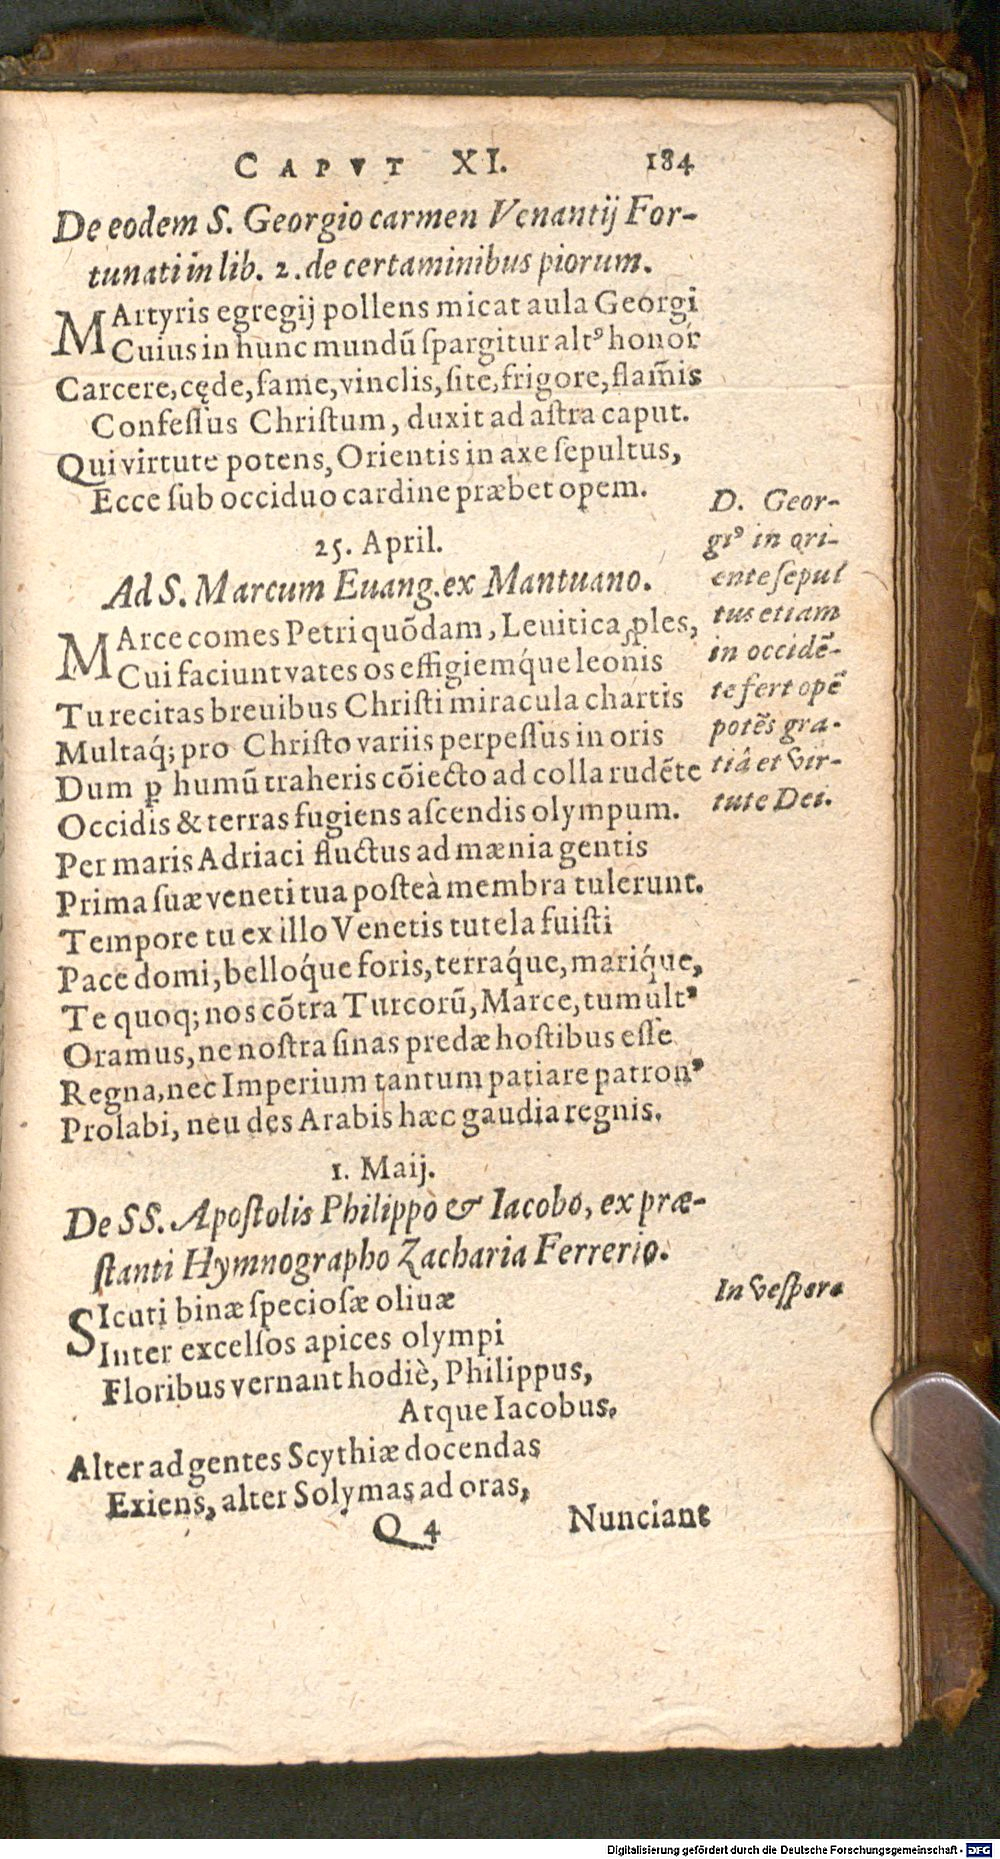 CAPVT XI. 184
De eodem S. Georgio carmen Venantij For-
tunati in lib. 2. de certaminibus piorum.
MArtyris egregij pollens micat aula Georgi
Cuius in hunc mundũ ſpargitur altꝰ honor
Carcere, cęde, fame, vinclis, ſite, frigore, flam̃is
Confeſſus Chriſtum, duxit ad aſtra caput.
Qui virtute potens, Orientis in axe ſepultus,
Ecce ſub occiduo cardine præbet opem.
25. April.
Ad S. Marcum Euang. ex Mantuano.
MArce comes Petri quõdam, Leuitica ꝓles,
Cui faciunt vates os effigiemq́ue leonis
Tu recitas breuibus Chriſti miracula chartis
Multaq́; pro Chriſto variis perpeſſus in oris
Dum ꝑ humũ traheris cõiecto ad colla rudẽte
Occidis & terras fugiens aſcendis olympum.
Per maris Adriaci fluctus ad mænia gentis
Prima ſuæ veneti tua poſteà membra tulerunt.
Tempore tu ex illo Venetis tutela fuiſti
Pace domi, belloq́ue foris, terraq́ue, mariq́ue,
Te quoq; nos cõtra Turcorũ, Marce, tumultꝰ
Oramus, ne noſtra ſinas predæ hoſtibus eſſe
Regna, nec Imperium tantum patiare patronꝰ
Prolabi, neu des Arabis hæc gaudia regnis.
1. Maij.
De SS. Apoſtolis Philippo & Iacobo, ex præ-
ſtanti Hymnographo Zacharia Ferrerio.
SIcuti binæ ſpecioſæ oliuæ
Inter excelſos apices olympi
Floribus vernant hodiè, Philippus,
Atque Iacobus.
Alter ad gentes Scythiæ docendas
Exiens, alter Solymas ad oras,
Q 4 Nunciant
D. Geor-
giꝰ in ori-
ente ſepul
tus etiam
in occidẽ-
te fert opẽ
potẽs gra-
tiâ et vir-
tute Dei.
In veſperæ
Digitalisierung gefördert durch die Deutsche Forschungsgemeinschaft - DFG